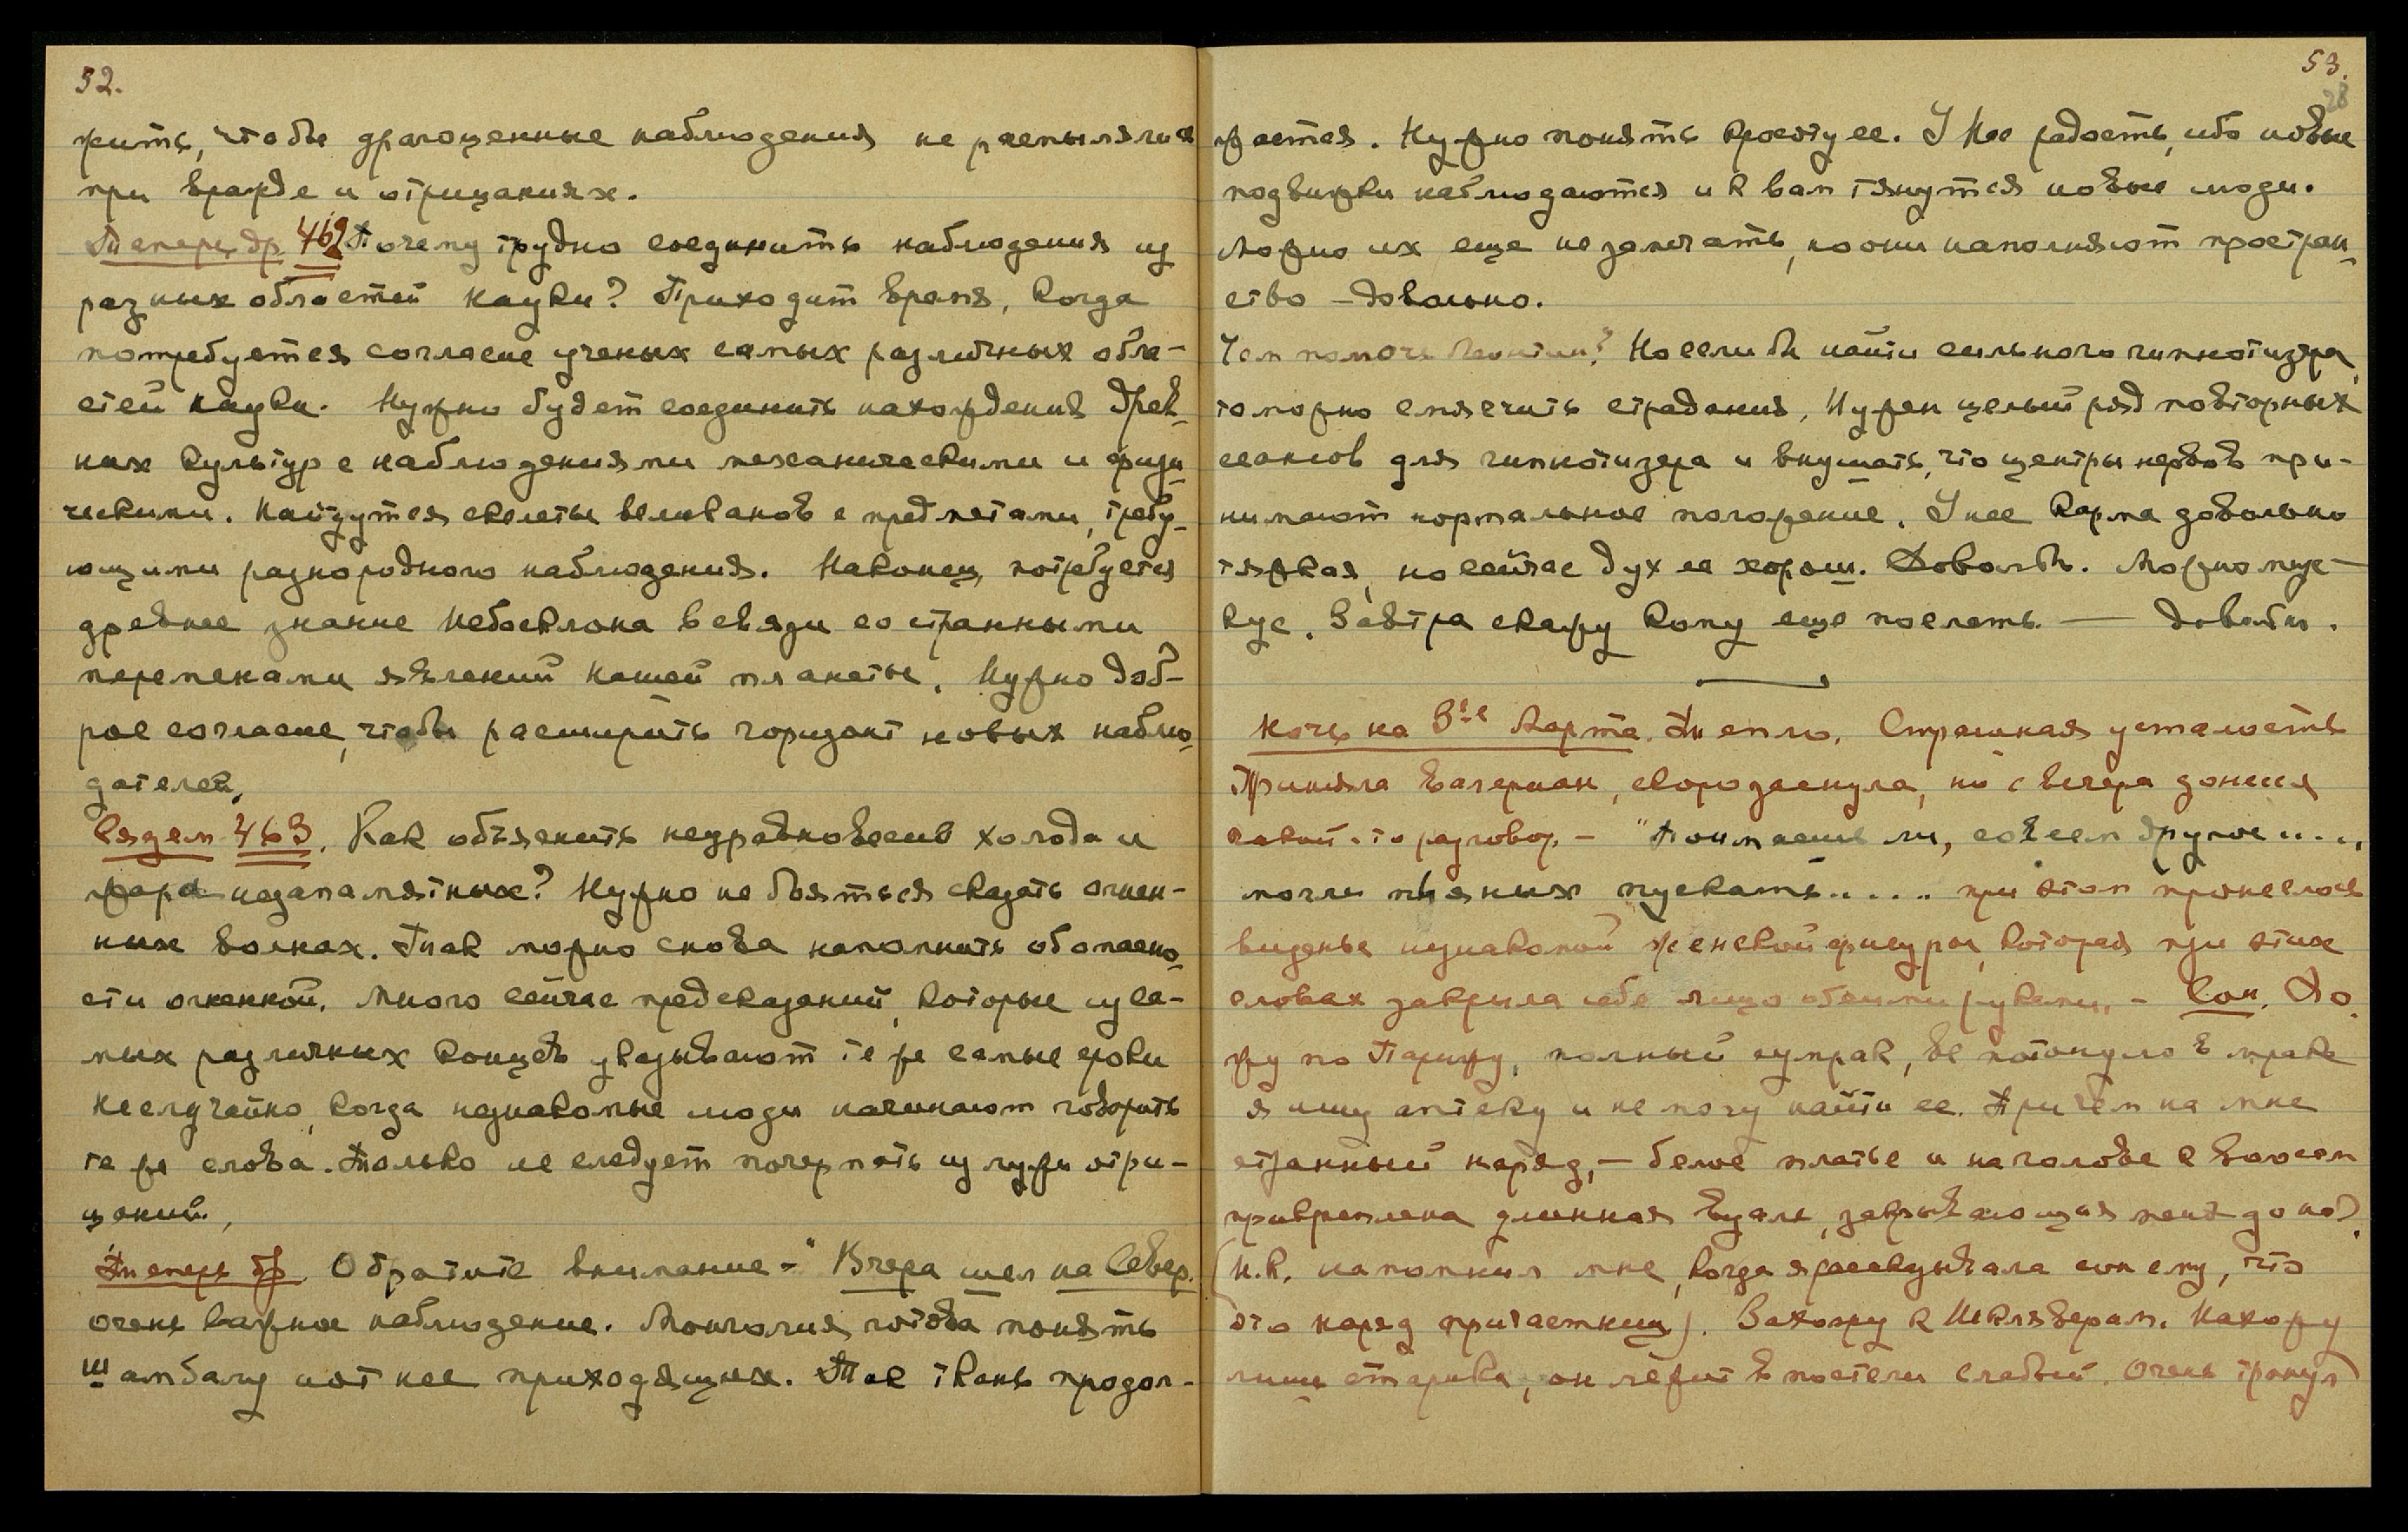 52.
жить, чтобы драгоценные наблюдения не распылялись
при вражде и отрицаниях.
Теперь др. 462 Почему трудно соединить наблюдения из
разных областей науки? Приходит время, когда
потребуется согласие ученых самых различных обла-
стей науки. Нужно будет соединить нахождения древ-
них культур с наблюдениями механическими и физи-
ческими. Найдутся скелеты великанов с предметами, требу-
ющими разнородного наблюдения. Наконец, потребуется
древнее знание Небосклона в связи со странными
переменами явлений нашей планеты. Нужно доб-
рое согласие, чтобы расширить горизонт новых наблю-
дателей.
463. Как объяснить неуравновесие холода и
жара незапамятных? Нужно не бояться сказать огнен-
ных волнах. Так можно снова напомнить об опасно-
сти огненной. Много сейчас предсказаний, которые из са-
мых различных концов указывают те же самые сроки
Неслучайно, когда незнакомые люди начинают говорить
те же слова. Только не следует почерпать из лужи отри-
цаний.
Теперь др. Обратите внимание - "Вчера шел на Север.
очень важное наблюдение. Монголия готова понять
Шамбалу и от нее приходящих. Так ткань продол-
53.
28
жается. Нужно понять красоту ее. У Нас радость, ибо новые
подвижки наблюдаются и к вам тянутся новые люди.
Можно их еще не замечать, но они наполняют простран-
ство - довольно.
Чем помочь Леонтин? Но если бы найти сильного гипнотизера,
то можно смягчить страдания. Нужен целый ряд повторных
сеансов для гипнотизера и внушать, что центры нервов при-
нимают нормальное положение. У нее Карма довольно
тяжкая, но сейчас дух ее хорош. Довольн. Можно мус-
кус. Завтра скажу кому еще послать. — довольн.
Ночь на 3ье Марта. Тепло. Страшная усталость
Приняла Валериан, скоро заснула, но с вечера донесся
какой-то разговор. - "Понимаешь ли, совсем другое....
могли пьяных пускать..... при этом пронеслось
виденье незнакомой женской фигуры, которая при этих
словах закрыла себе лицо обеими руками. - Сон. Хо-
жу по Парижу, полный сумрак, все потонуло в мраке
я ищу аптеку и не могу найти ее. Причем на мне
странный наряд, - белое платье и на голове к волосам
прикреплена длинная вуаль, закрывающая меня до ног.
(Н.К. напомнил мне, когда я рассказывала сон ему, что
это наряд причастниц). Захожу к Шкляверам. Нахожу
лишь старика, он лежит в постели слабый. Очень тронут